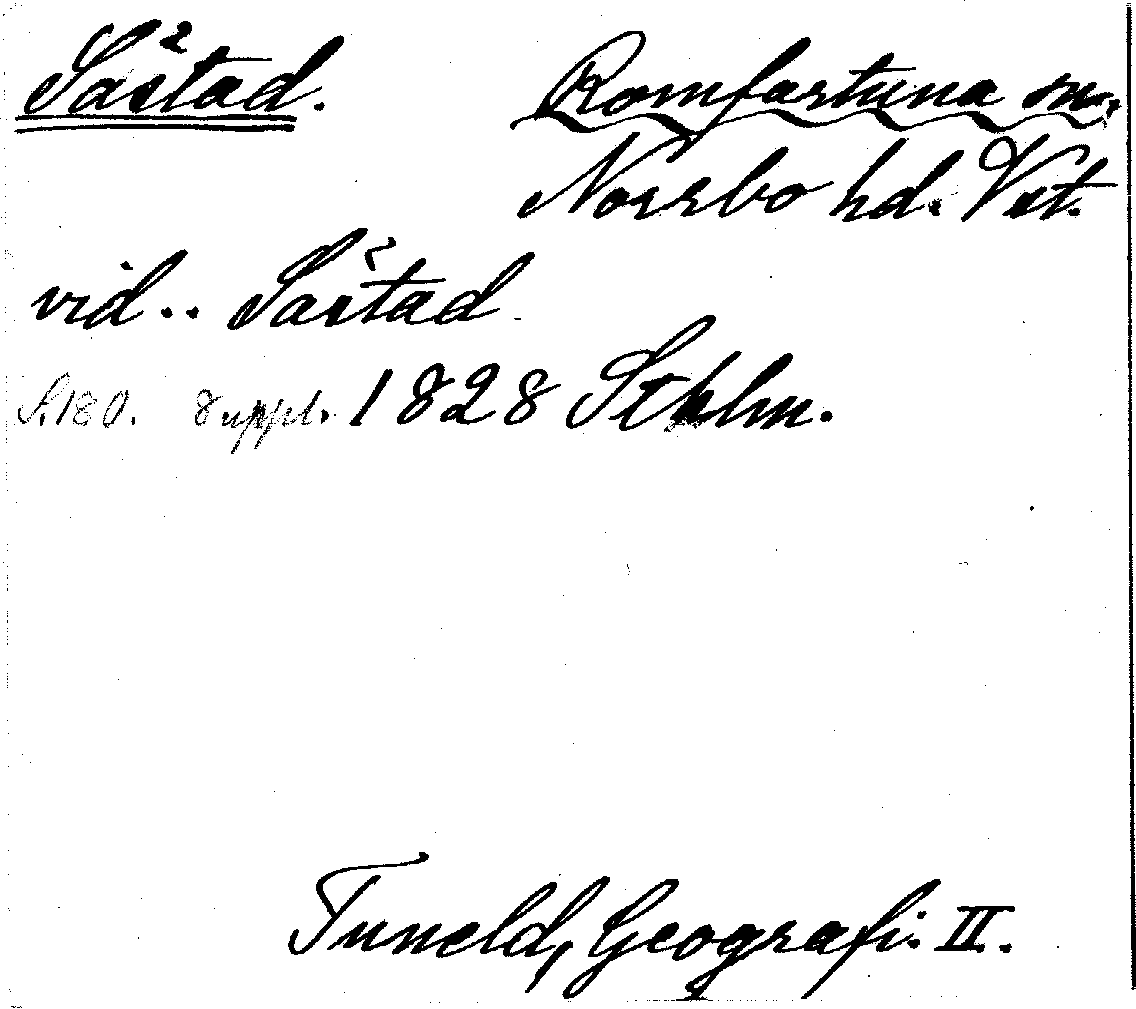 Såstad. Romfartuna sn.
Norrbo hd. Vst.
vid .. Såstad
S. 180. 8 uppl. 1828 Sthlm.
Tuneld, Geografi. II.